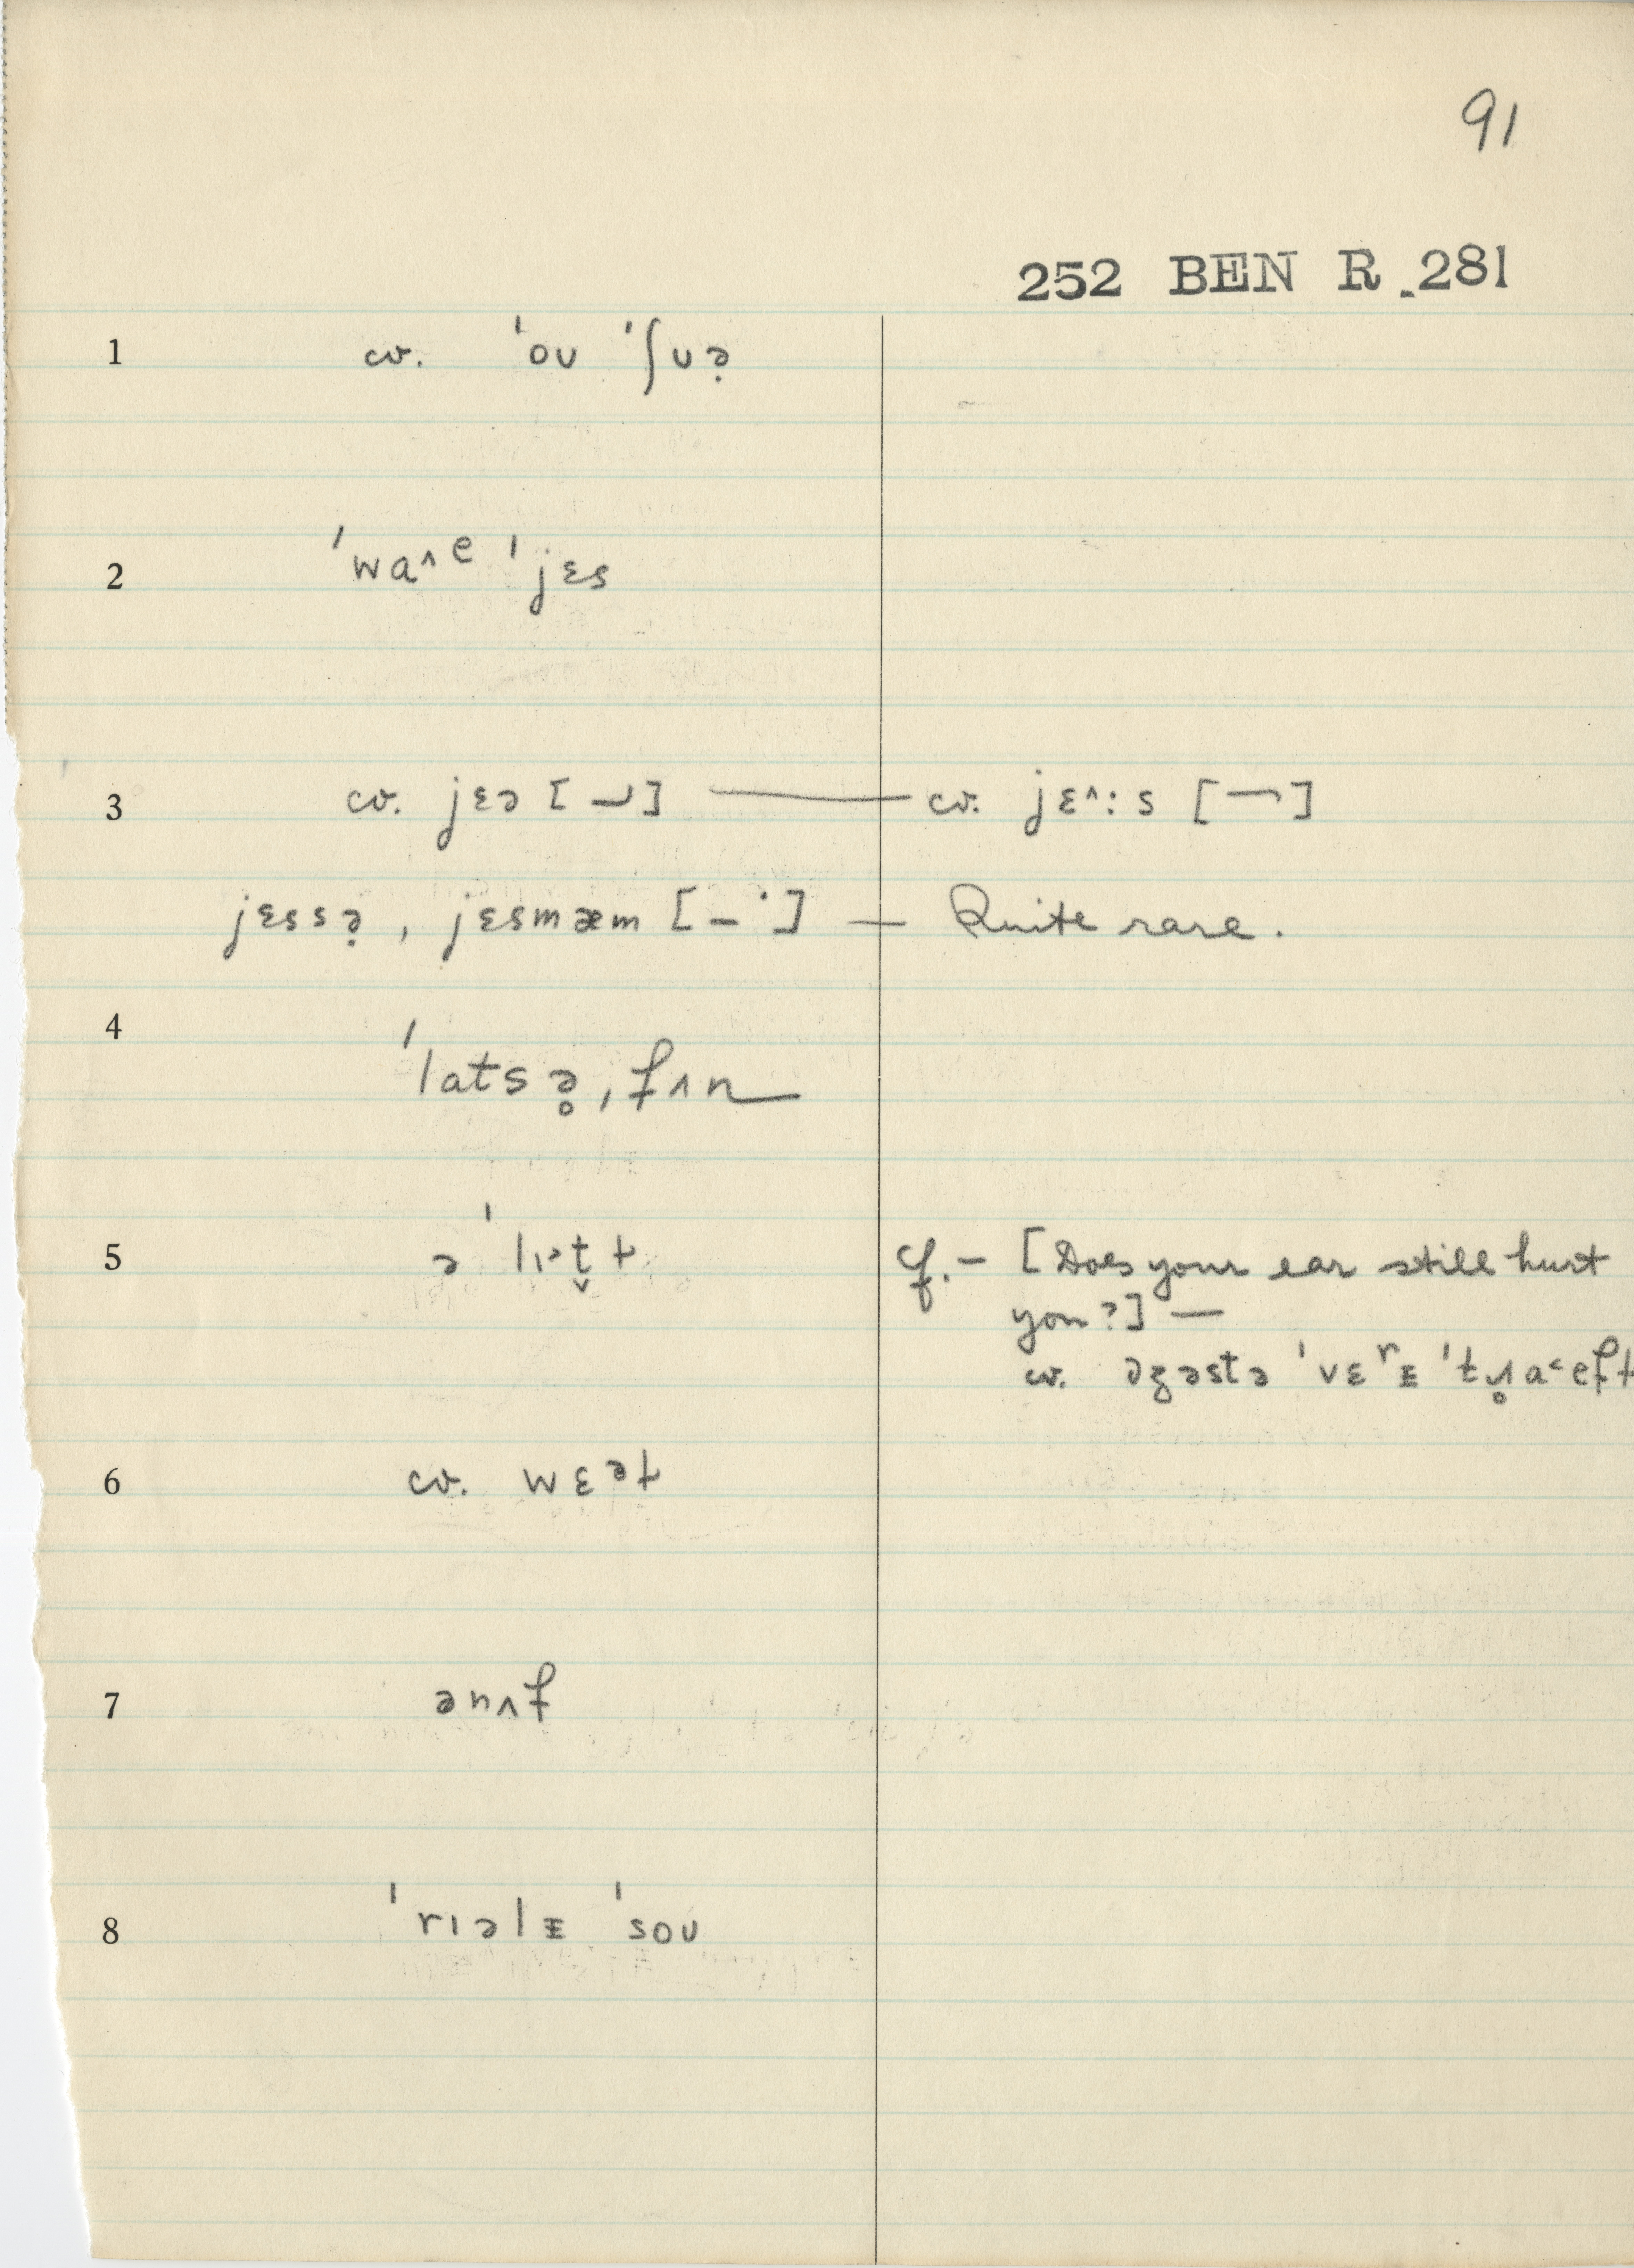 91
252 BEN R 281
1 cv. ˈoʊ ˈʃʊə̣
2 ˈwa^ᵉ ˈjɛs
3 cv. jɛə [ ⏘ ] — cv. jɛ^:s [ ¬ ]
jɛssə̣, jɛsmæm [ – ˙ ] — Quite rare.
4 ˈlatsə̥, fʌn
5 ə ˈlɪ˃t̬ɫ cf. – [Does your ear still hurt
you?] —
cv. əʒəstə ˈvɛʳᵻ ˈtɹ̥a˂efɫ
6 cv. wɛᵊɫ
7 ənʌf
8 ˈrɪəlᵻ ˈsoʊ